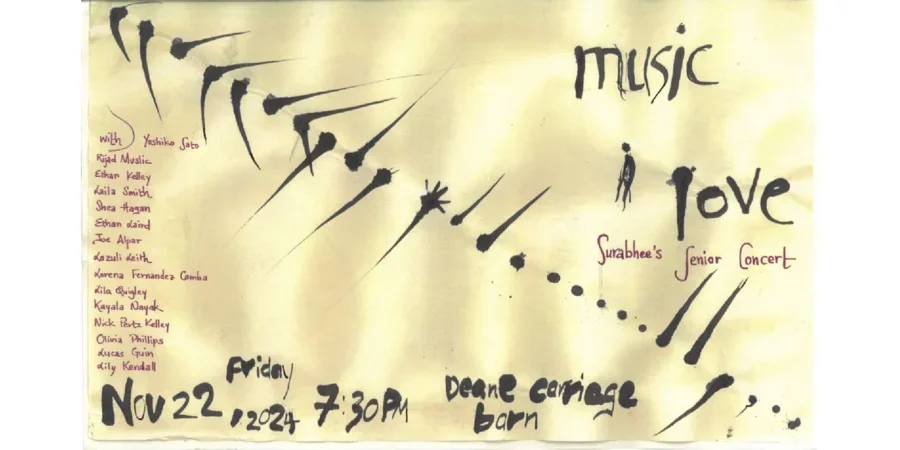 music
love
Surabhee's Senior Concert
with Yoshiko Sato
Rijad Muslic
Ethan Kelley
Laila Smith
Shea Hagan
Ethan Laird
Joe Alpar
Lazuli Leith
Lorena Fernandez Camba
Lila Quigley
Kayala Nayak
Nick Pertz Kelley
Olivia Phillips
Lucas Guin
Lily Kendall
Friday
Nov 22, 2024 7:30PM
Deane carriage
barn